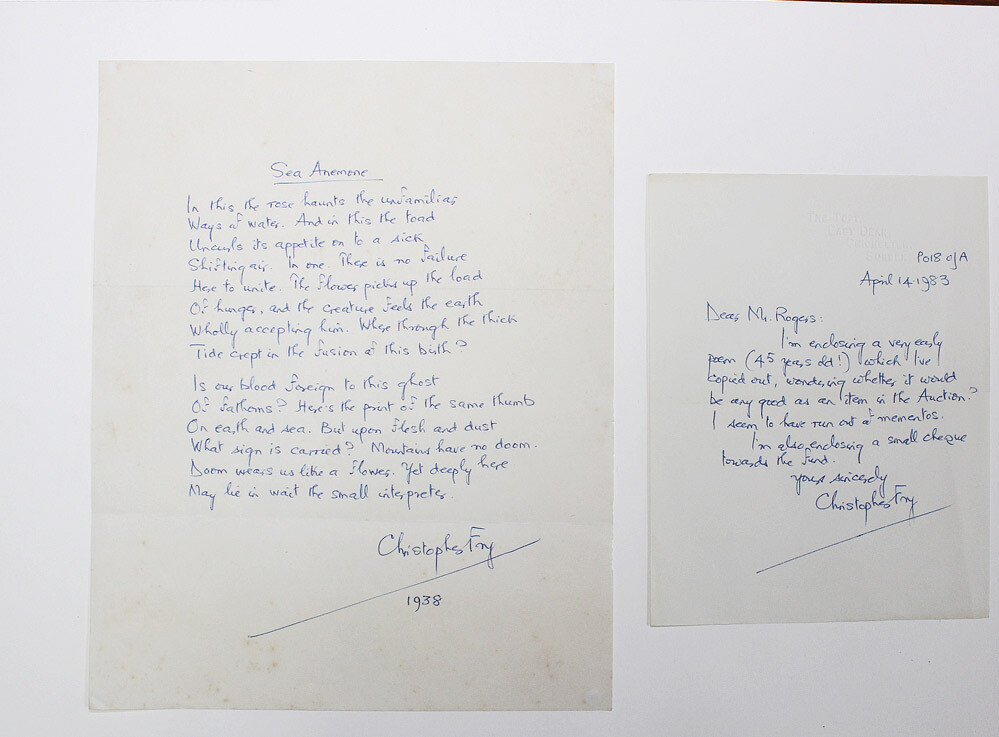 Sea Anemone
In this the rose haunts the unfamiliar
Ways of water. And in this the toad
Uncurls its appetite on to a sick
Shifting air. In one. There is no failure
Here to unite. The flower picks up the load
Of hunger, and the creature feels the earth
Wholly accepting him. Where through the thick
Tide crept in the fusion of this birth?
Is our blood foreign to this ghost
Of fathoms? Here's the print of the same thumb
On earth and sea. But upon flesh and dust
What sign is carried? Mountains have no doom.
Doom wears us like a flower. Yet deeply here
May lie in wait the small interpreter.
Christopher Fry
1938
PO18 0JA
April 14 1983
Dear Mr. Rogers:
I'm enclosing a very early
poem (45 years old!) which I've
copied out, wondering whether it would
be any good as an item in the Auction?
I seem to have run out of mementos.
I'm also enclosing a small cheque
towards the fund.
yours sincerely
Christopher Fry